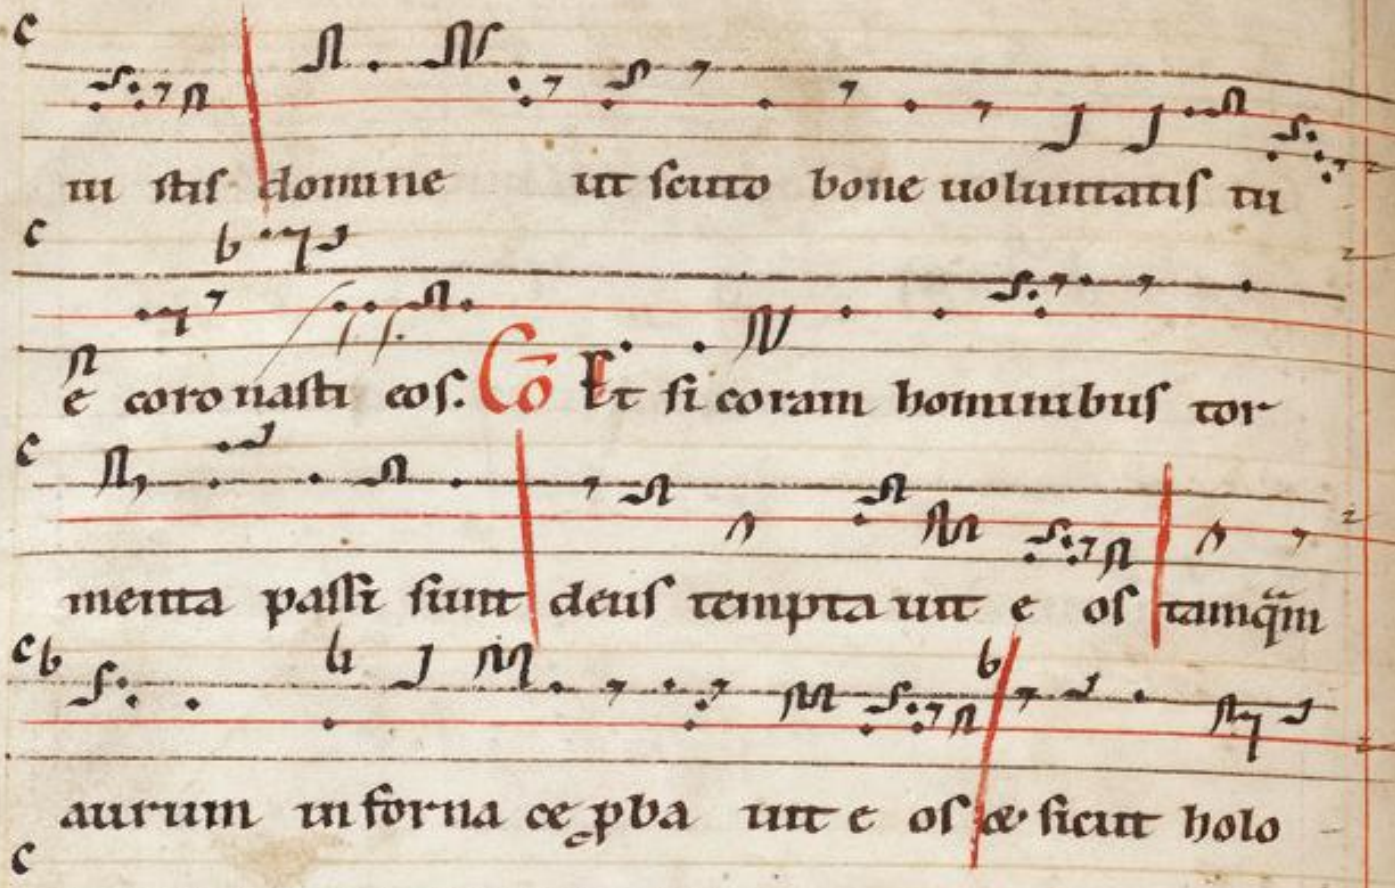 c
in stis domine ut scuto bone uoluntatis tu
c b
e coronasti eos. Co Et si coram hominibus tor
c
menta passi sunt deus temptauit e os tamq̃m
c b b b
aurum in fornace ꝓba uit e os & sicut holo
c